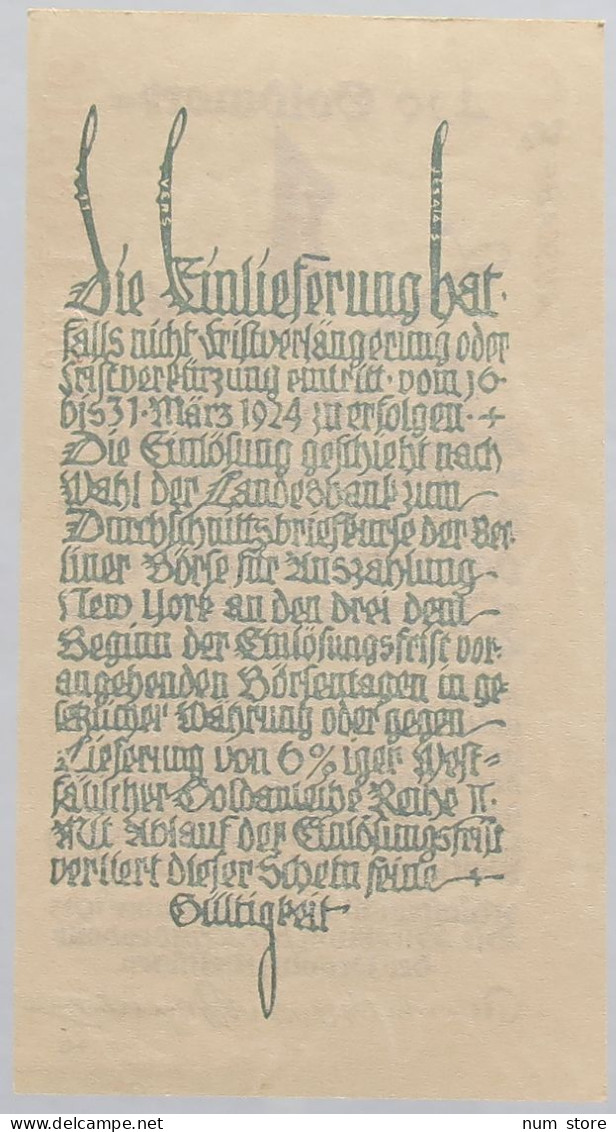 VERS
JESAIA 5
Die Einlieferung hat·
falls nicht Fristverlängerung oder
Fristverkürzung eintritt· vom 16·
bis 31· März 1924 zu erfolgen·+
Die Einlösung geschieht nach
Wahl der Landesbank zum
Durchschnittsbriefkurse der Ber-
liner Börse für Auszahlung
New York an den drei dem
Beginn der Einlösungsfrist vor-
angehenden Börsentagen in ge-
setzlicher Währung oder gegen
Lieferung von 6%iger West=
fälischer Goldanleihe Reihe II·
Mit Ablauf der Einlösungsfrist
verliert dieser Schein seine +
Gültigkeit
num store